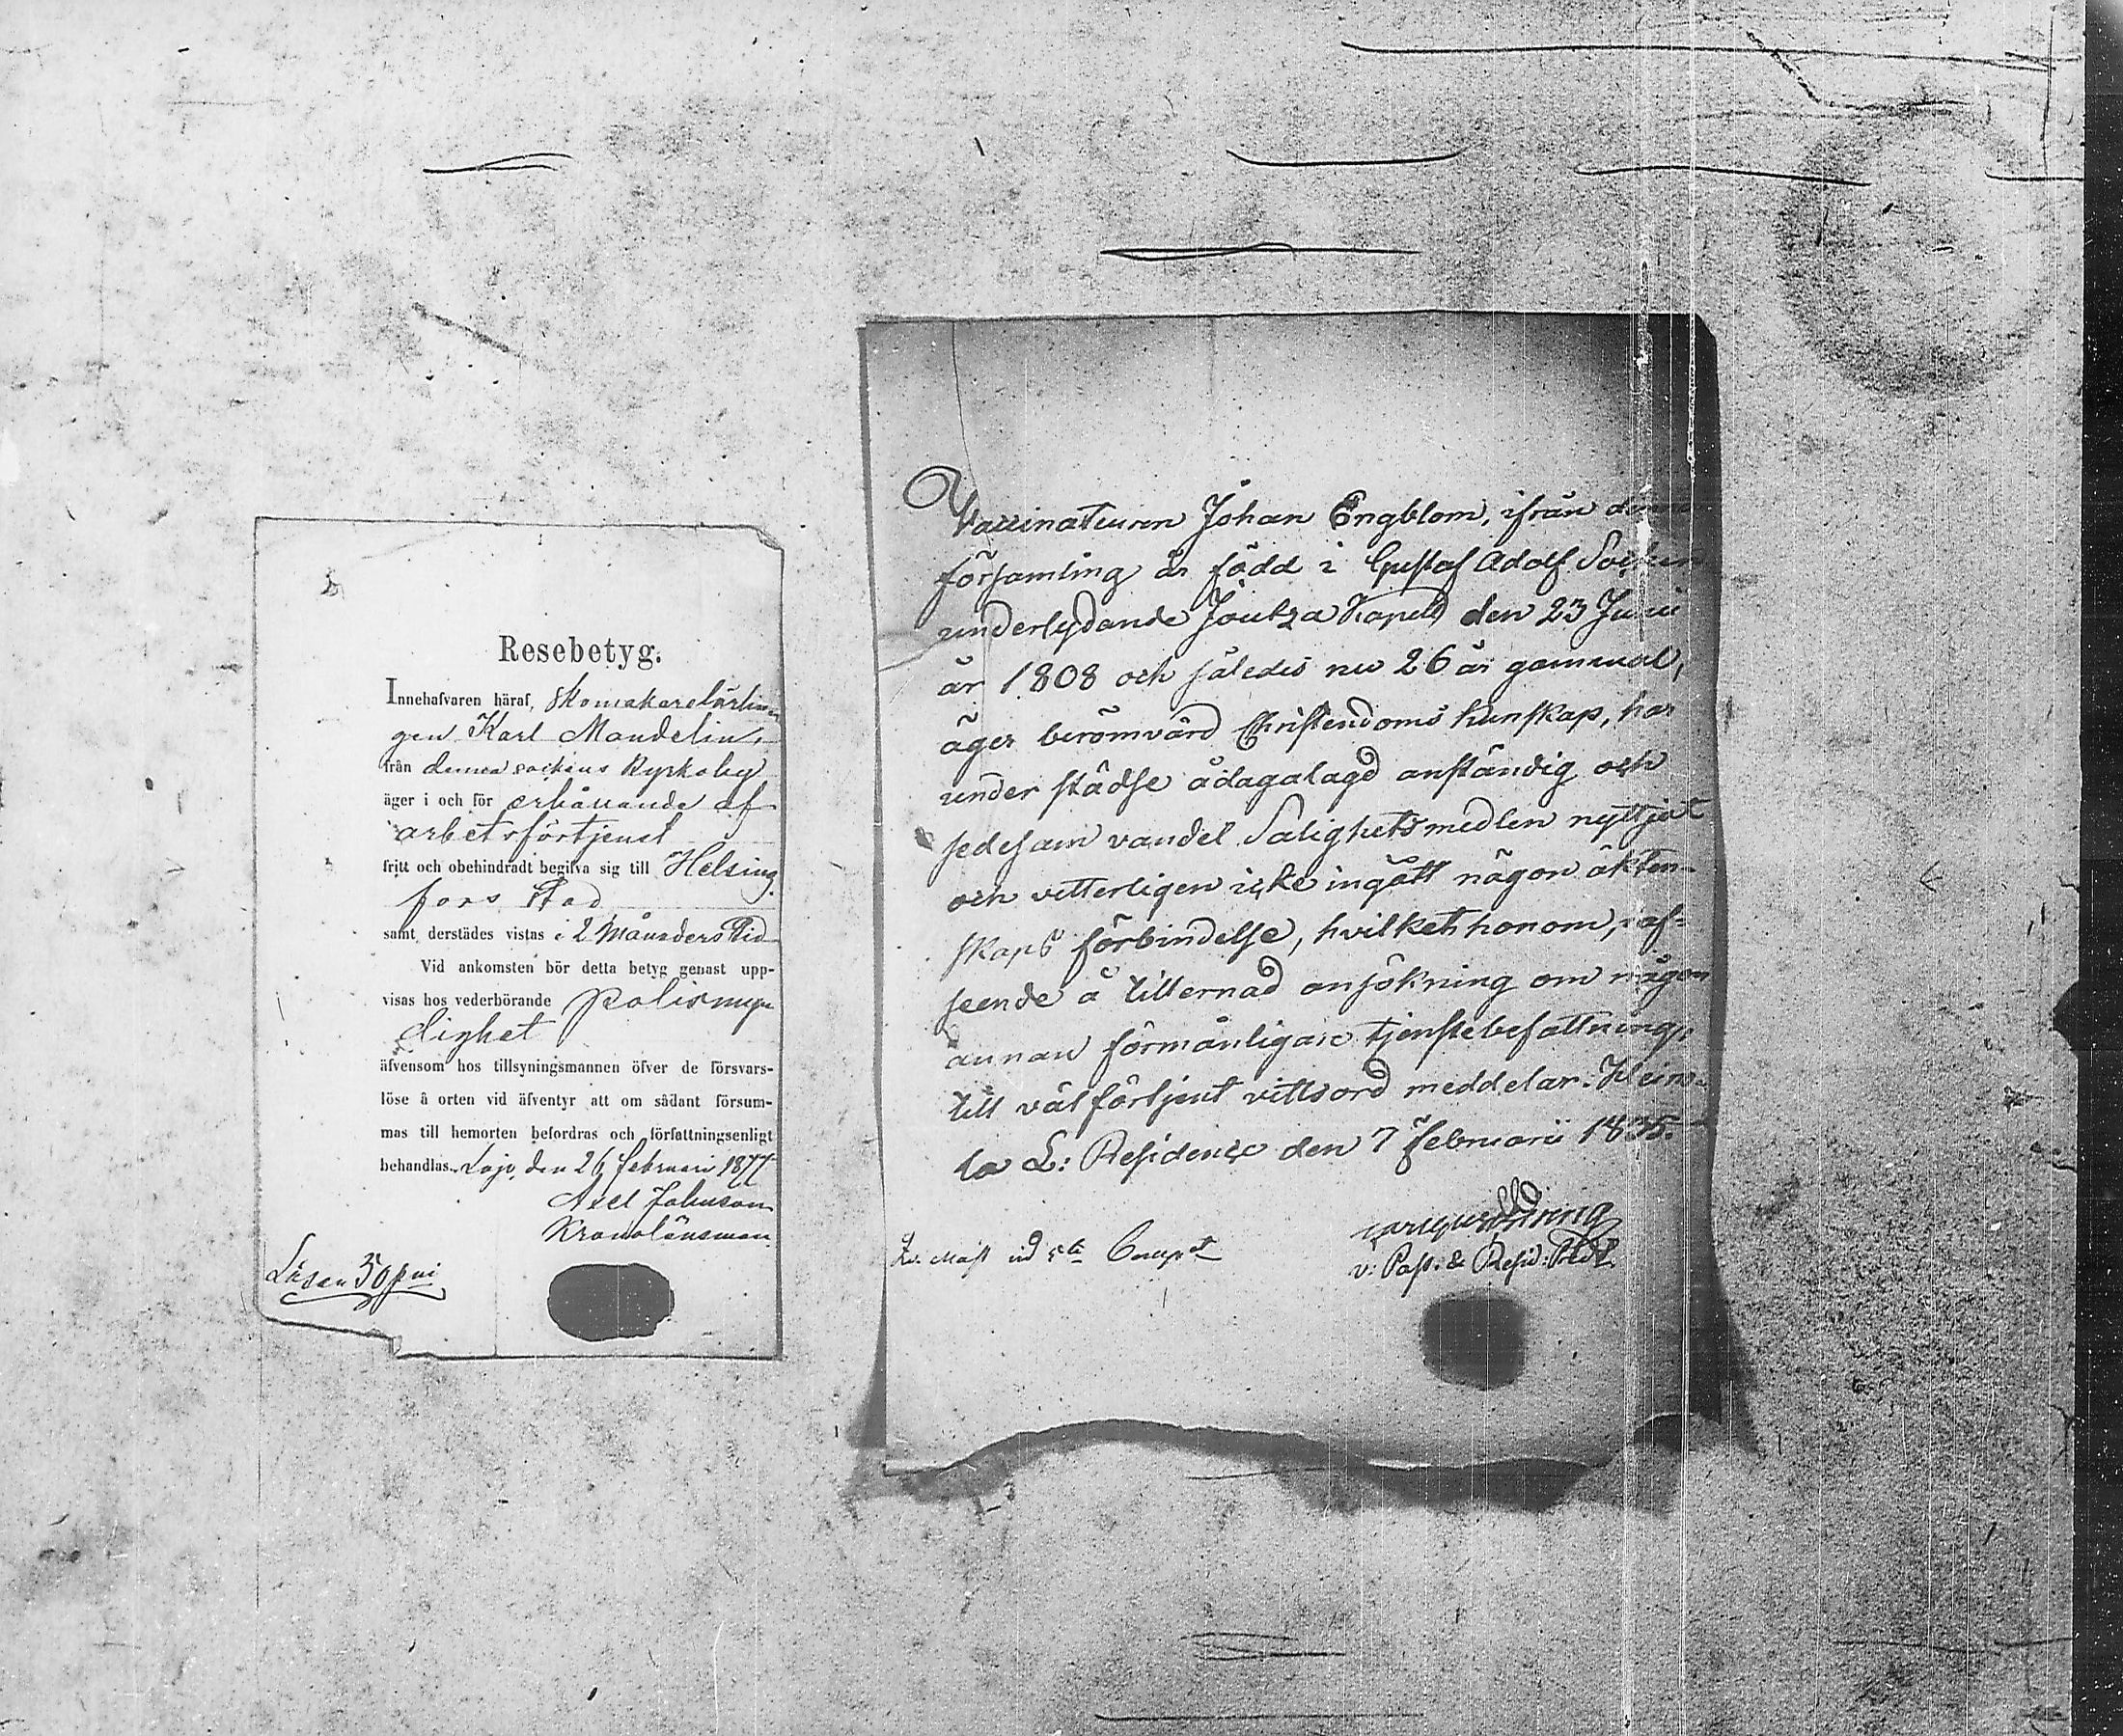 Resebetyg.
Innehafvaren häraf, Skomakarelärlin-
gen Karl Mandelin,
från denna sockens Kyrkoby
äger i och för erhållande af
arbetsförtjenst
fritt och obehindradt begifva sig till Helsing-
fors stad
samt derstädes vistas i 2 Månaders tid
Vid ankomsten bör detta betyg genast upp-
visas hos vederbörande polismyn-
dighet
äfvensom hos tillsyningsmannen öfver de försvars-
löse å orten vid äfventyr att om sådant försum-
mas till hemorten befordras och författningsenligt
behandlas. Lojo, den 26 februari 1877
Axel Johnson
Kronolänsman.
Lösen 50 pni
Vaccinateuren Johan Engblom, ifrån denna
församling är född i Gustaf Adolf Socken
underlydande Joutza Kapell den 23 Junii
år 1808 och således nu 26 år gammal,
äger berömvärd Christendoms kunskap, har
under städse ådagalagd anständig och
sedesam vandel Salighetsmedlen nyttjat
och vetterligen icke ingått någon äkten-
skaps förbindelse, hvilket honom, i af-
seende å tillernad ansökning om någon
annan förmånligare tjenstebefattning,
till välförtjent vittsord meddelar. Heino-
la L: Residence den 7 Februarii 1835.
v: Past: & Resid: Pred: